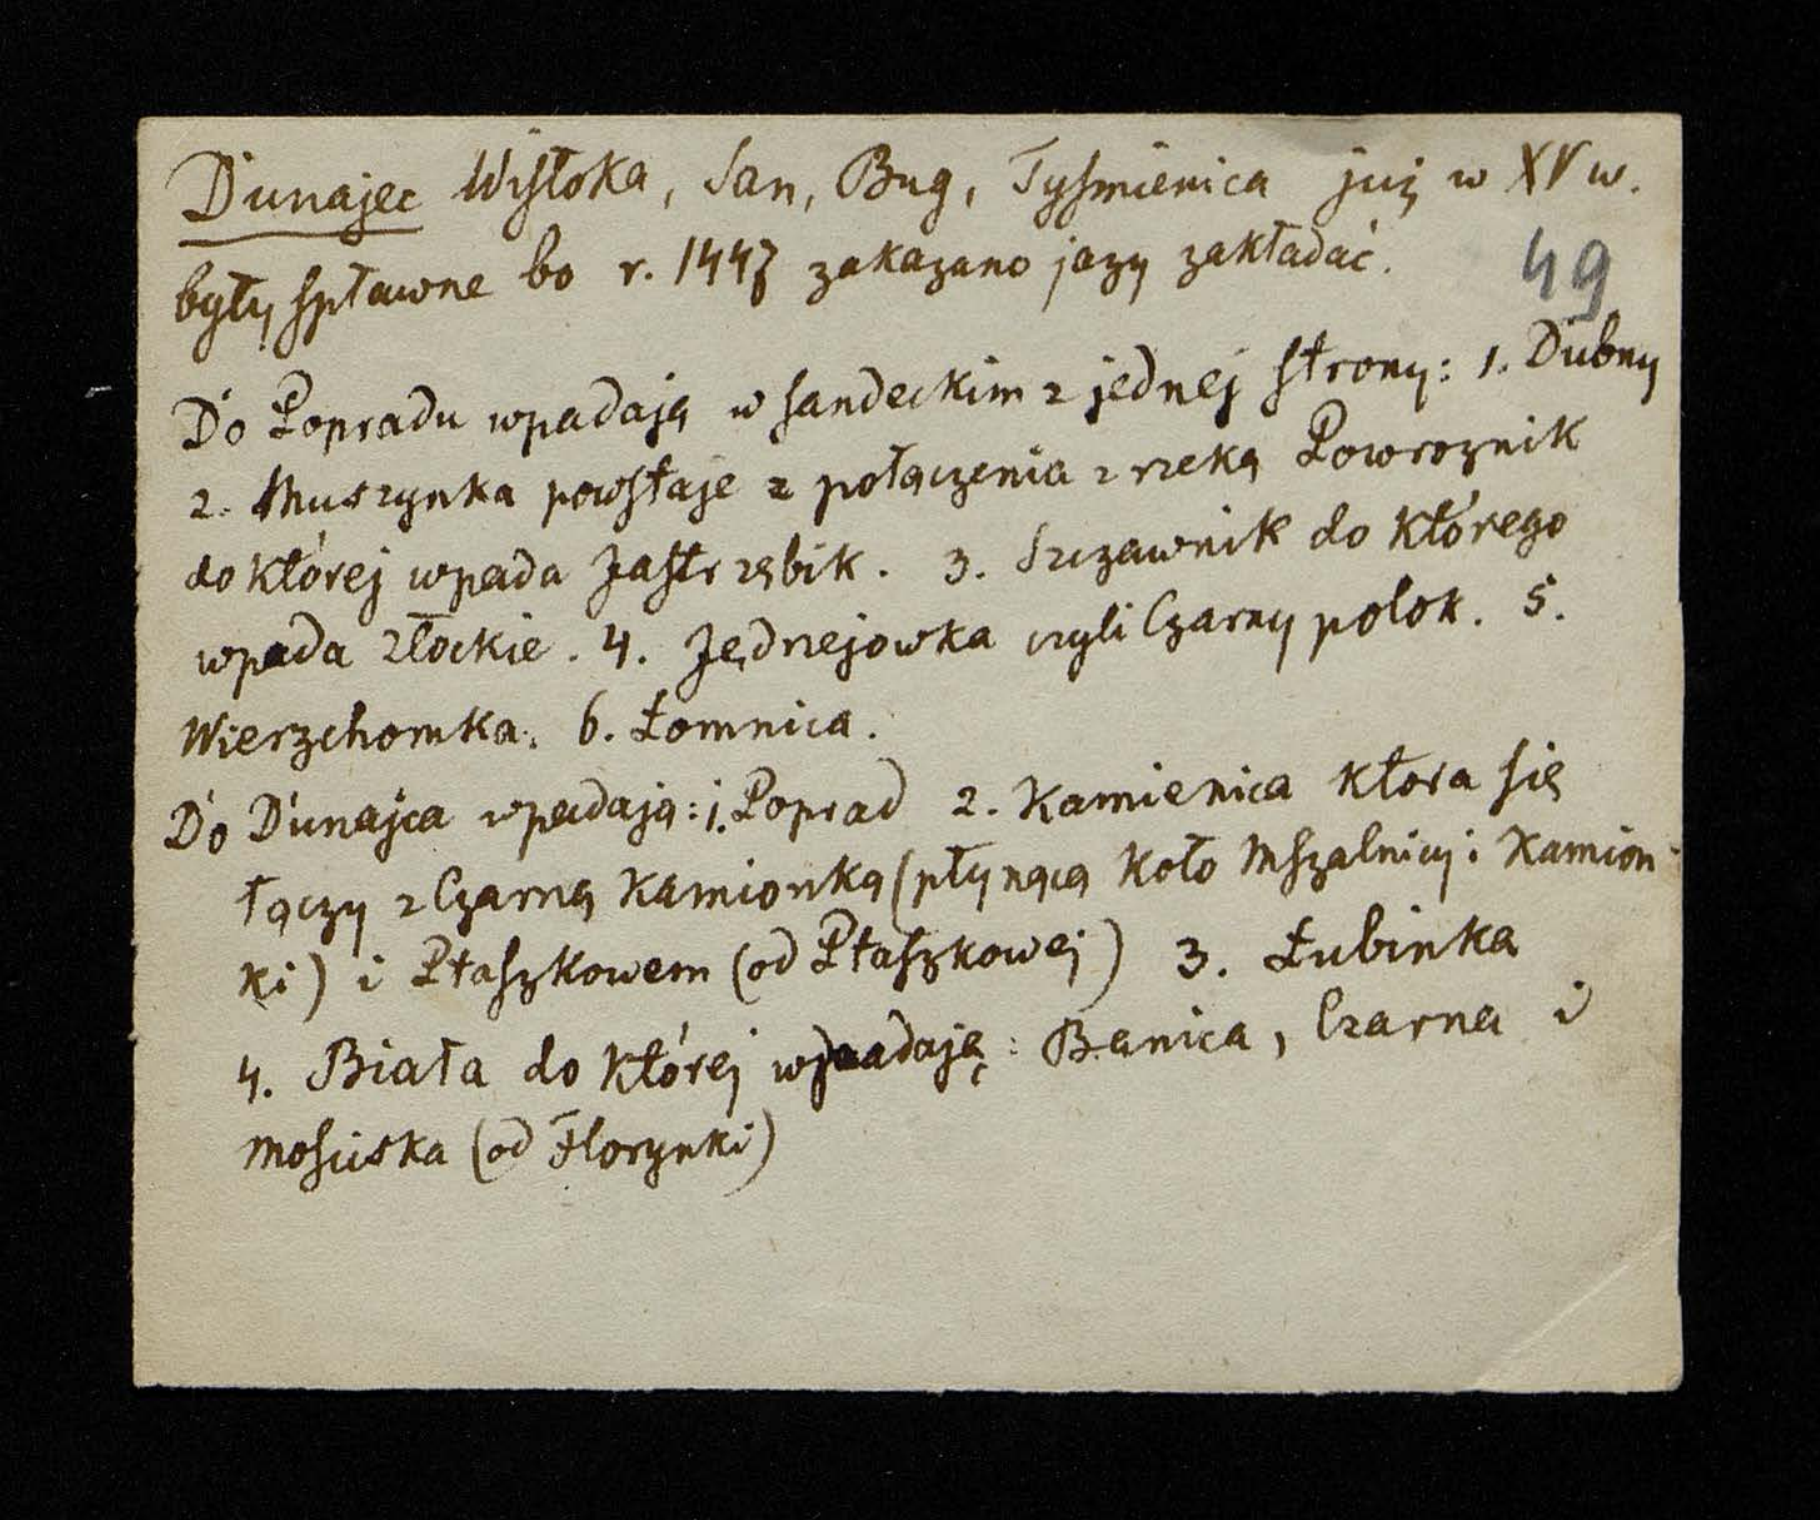 Dunajec Wisłoka, San, Bug, Tyśmienica już w XV w.
były spławne bo r. 1447 zakazano jazy zakładać.
49
Do Popradu wpadają w sandeckim z jednej strony: 1. Dubny
2. Muszynka powstaje z połączenia z rzeką Powroznik
do której wpada Jastrzębik. 3. Szczawnik do którego
wpada Złockie. 4. Jędrzejowka czyli Czarny potok. 5.
Wierzchomka. 6. Łomnica.
Do Dunajca wpadają: 1. Poprad 2. Kamienica ktora się
łączy z Czarną Kamionką (płynącą koło Mszalnicy i Kamion-
ki) i Ptaszkowem (od Ptaszkowej) 3. Łubinka
4. Biała do której wpadają: Banica, Czarna i
Mościska (od Florynki)